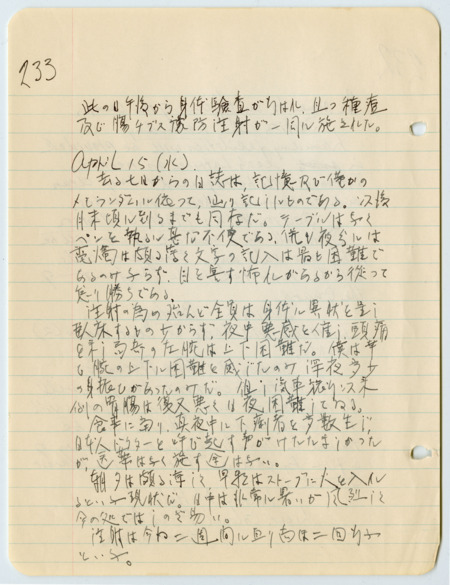 233
此の日午後から身体驗査が行はれ、且つ種痘
及び腸チブス豫防注射が一同に施された。
April 15 (水)
去る七日からの日誌は、記憶及び僅かの
メモランダムに依って、辿り記したものである。以後
月末頃に到るまでも同様だ。テーブルは無く
ペンを執るに甚だ不便である。併も夜分には
電燈は頗る淡く文字の記入は最と困難で
あるのみならず、目を害す怖れがあるから從って
怠り勝ちである。
注射の為め殆んど全員は身体に異状を呈し
臥床するもの少からず、夜中悪感を催し、頭痛
を来し局部の左腕は上下困難だ。僕は単
に腕の上下に困難を感じたのみ 深夜多少
の身振ひがあったのみだ。但し汽車
の胃腸は復又悪く は困難してゐる。
食華に当り、真夜中に下痢者を多数生じ、
日本人ドクターを呼び起す声がけたたましかった
が 途は無く施す途は無い。
朝夕は頗る 早起はストーブに火を入れ
るといふ現状だ。日中は非常に暑いが
今の処では凌ぎ易い。
注射は今ね二週間に亘り尚は二回行ふ
といふ。